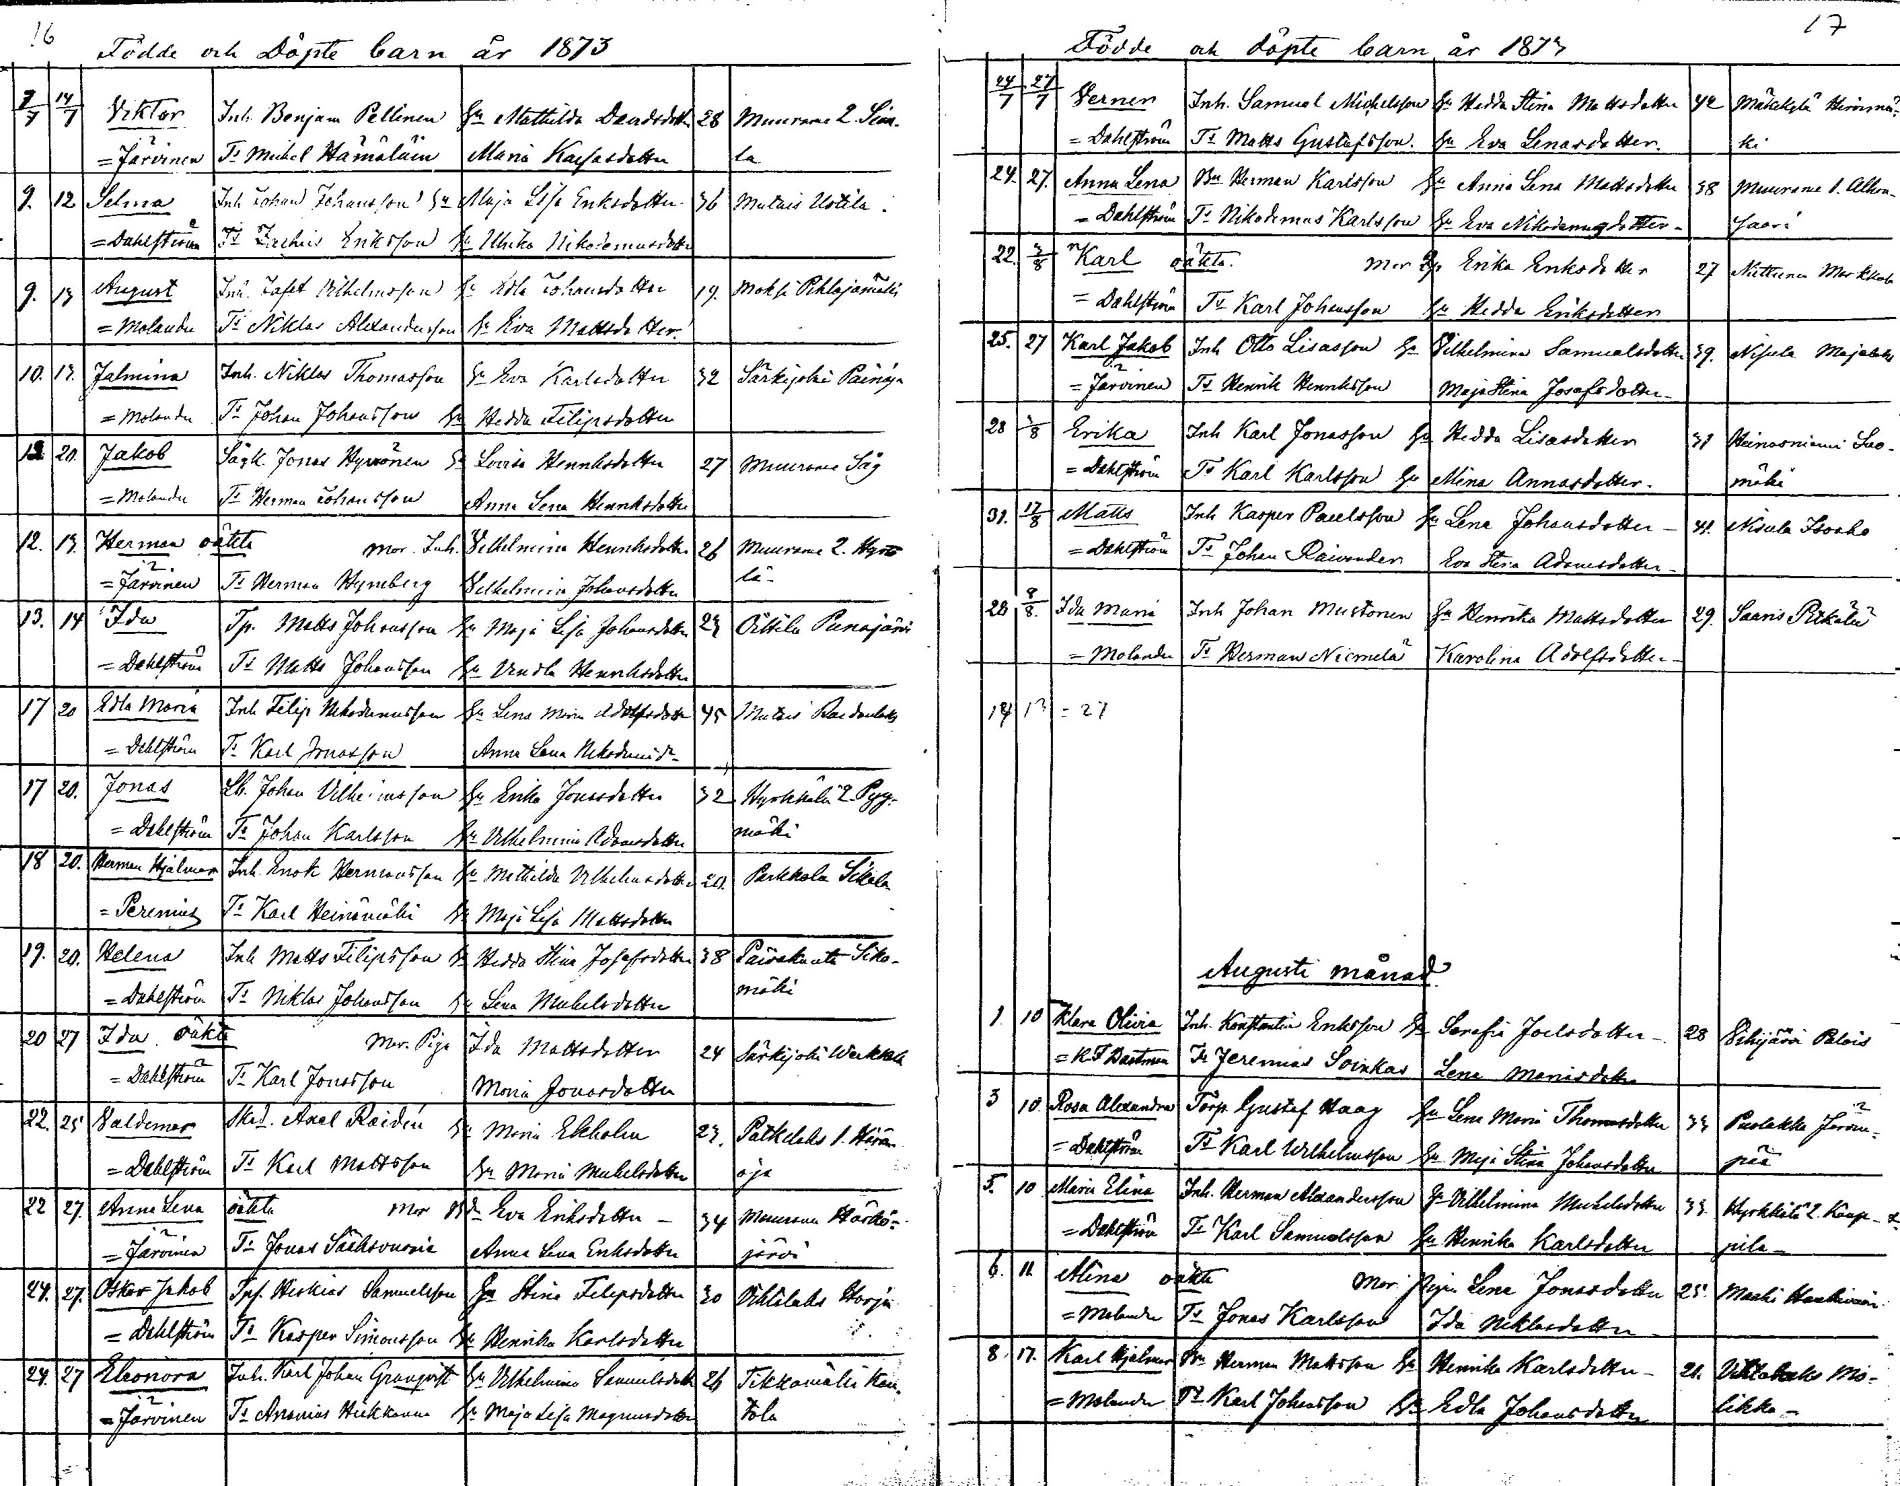 16
Födde och Döpte barn år 1873
7/7 14/7 Viktor Inh. Benjam Pellinen Hu Mathilda Davidsdotter 28 Muurame 2 Simu-
= Järvinen Tt Mickel Hämäläin Maria Kaisasdotter la
9. 12 Selma Inh Johan Johansson Hu Maja Lisa Eriksdotter 36 Mutais Ustila.
= Dahlström Tt Eriksson Hu Ulrika Nikodemusdotter
9. 13 August Inh. Jafet Vilhelmsson Hu Edla Johansdotter 19. Moksi Pihlajamäki
= Molander Tt Niklas Alexandersson Hu Eva Mattsdotter
10. 13. Jalmina Inh. Niklas Thomasson Hu Eva Karlsdotter 32 Särkijoki
= Molander Tt Johan Johansson Hu Hedda Filipsdotter
12 20. Jakob Sågk. Jonas Hyvönen Hu Lovisa Henriksdotter 27 Muurame Såg
= Molander Tt Herman Johansson Anna Lena Henriksdotter
12. 13. Herman oäkta mor. Inh. Vilhelmina Henriksdotter 26 Muurame 2.
= Järvinen Tt Herman Hymberg Vilhelmina Johansdotter lä-
13. 14 Ida Tp. Matts Johansson Hu Maja Lisa Johansdotter 23 Punajärvi
= Dahlström Tt Matts Johansson Hu Vendla Henriksdotter
17 20 Edla Maria Inh Filip Nikodemusson Hu Lena Maria Adolfsdotter 45 Mutais
= Dahlström Tt Karl Jonasson Anna Lena Nikodemidr
17 20. Jonas Johan Vilhelmsson Hu Erika Jonasdotter 32 Hyrkkälä 2 Pyy-
= Dahlström Tt Johan Karlsson Hu Vilhelmina Adamsdotter mäki
18 20. Herman Hjalmar Inh. Enok Hermansson Hu Mathilda Vilhelmsdotter 20. Parkkola
= Perenius Tt Karl Heinämäki Hu Maja Lisa Mattsdotter
19. 20. Helena Inh Matts Filipsson Hu Hedda Stina Josefsdotter 38 Päiväkunta Siko-
= Dahlström Tt Niklas Johansson Hu Lena Mickelsdotter mäki
20 27 Ida oäkta Mor. Piga Ida Mattsdotter 24 Särkijoki
= Dahlström Tt Karl Jonasson Maria Jonasdotter
22. 25 Valdemar Axel Raidén Hu Maria Ekholm 23.
= Dahlström Tt Karl Mattsson Hu Maria Mickelsdotter oja
22 27. Anna Lena oäkta Mor Eva Eriksdotter - 34 Muurame
= Järvinen Tt Jonas Säähsvuoria Anna Lena Eriksdotter järvi
24. 27. Oskar Jakob Spf. Heskias Samuelsson Hu Stina Filipsdotter 30
= Dahlström Tt Kasper Simonsson Hu Henrika Karlsdotter
24. 27 Eleonora Inh. Karl Johan Granqvist Hu Vilhelmina Samuelsdotter 26 Tikkamäki
= Järvinen Tt Ananias Hiekkanen Hu Maja Lisa Magnusdotter tola
17
Födde och döpte barn år 1873
24/7 27/7 Verner Inh. Samuel Michelsson Hu Hedda Stina Mattsdotter 42 Määtälä
= Dahlström Tt Matts Gustafsson. Hu Eva Lenasdotter. ki
24. 27. Anna Lena Bn Herman Karlsson Hu Anna Lena Mattsdotter 38 Muurame 1.
= Dahlström Tt Nikodemus Karlsson Hu Eva Nikodemusdotter - saari
22. 3/8 Karl oäkta. Mor Erika Eriksdotter 27 Nuttunen
= Dahlström Tt Karl Johansson Hu Hedda Eriksdotter
25. 27 Karl Jakob Inh Otto Lisasson Hu Vilhelmina Samuelsdotter 39. Nisula Majalahti
= Järvinen Tt Henrik Henriksson Maja Stina Josefsdotter -
28 3/8 Erika Inh Karl Jonasson Hu Hedda Lisasdotter 31 Heinosniemi Suo-
= Dahlström Tt Karl Karlsson Hu Mina Annasdotter. mäki
31. 17/8 Matts Inh Kasper Paulsson Hu Lena Johansdotter - 41. Nisula Isoaho
= Dahlström Tt Johan Raivander Eva Stina Adamsdotter -
28 8/8. Ida Maria Inh Johan Mustonen Hu Henrika Mattsdotter 29. Saaris Pitkälä
= Molander Tt Herman Niemelä Karolina Adolfsdotter -
14 13 = 27
Augusti månad
1 10 Klara Olivia Inh. Konstantin Eriksson Hu Serafia Joelsdotter - 28 Vihijärvi Palois
= K F Dastman Tt Jeremias Soinkas Lena Mariasdotter
3 10. Rosa Alexandra Torp. Gustaf Haag Hu Lena Maria Thomasdotter 33 Puolakka Järven-
= Dahlström Tt Karl Wilhelmsson Hu Maja Stina Johansdotter pää
5. 10 Maria Elina Inh. Herman Alexandersson Hu Vilhelmina Mickelsdotter 33. Hyrkkälä 2.
= Dahlström Tt Karl Samuelsson Hu Henrika Karlsdotter pila -
6. 11 Mina oäkta Mor pigan Lena Jonasdotter 25.
= Molander Tt Jonas Karlsson Ida Niklasdotter
8 17. Karl Hjalmar Bn Herman Mattsson Hu Henrika Karlsdotter - 21. Mo-
= Molander Tt Karl Johansson Hu Edla Johansdotter likka -